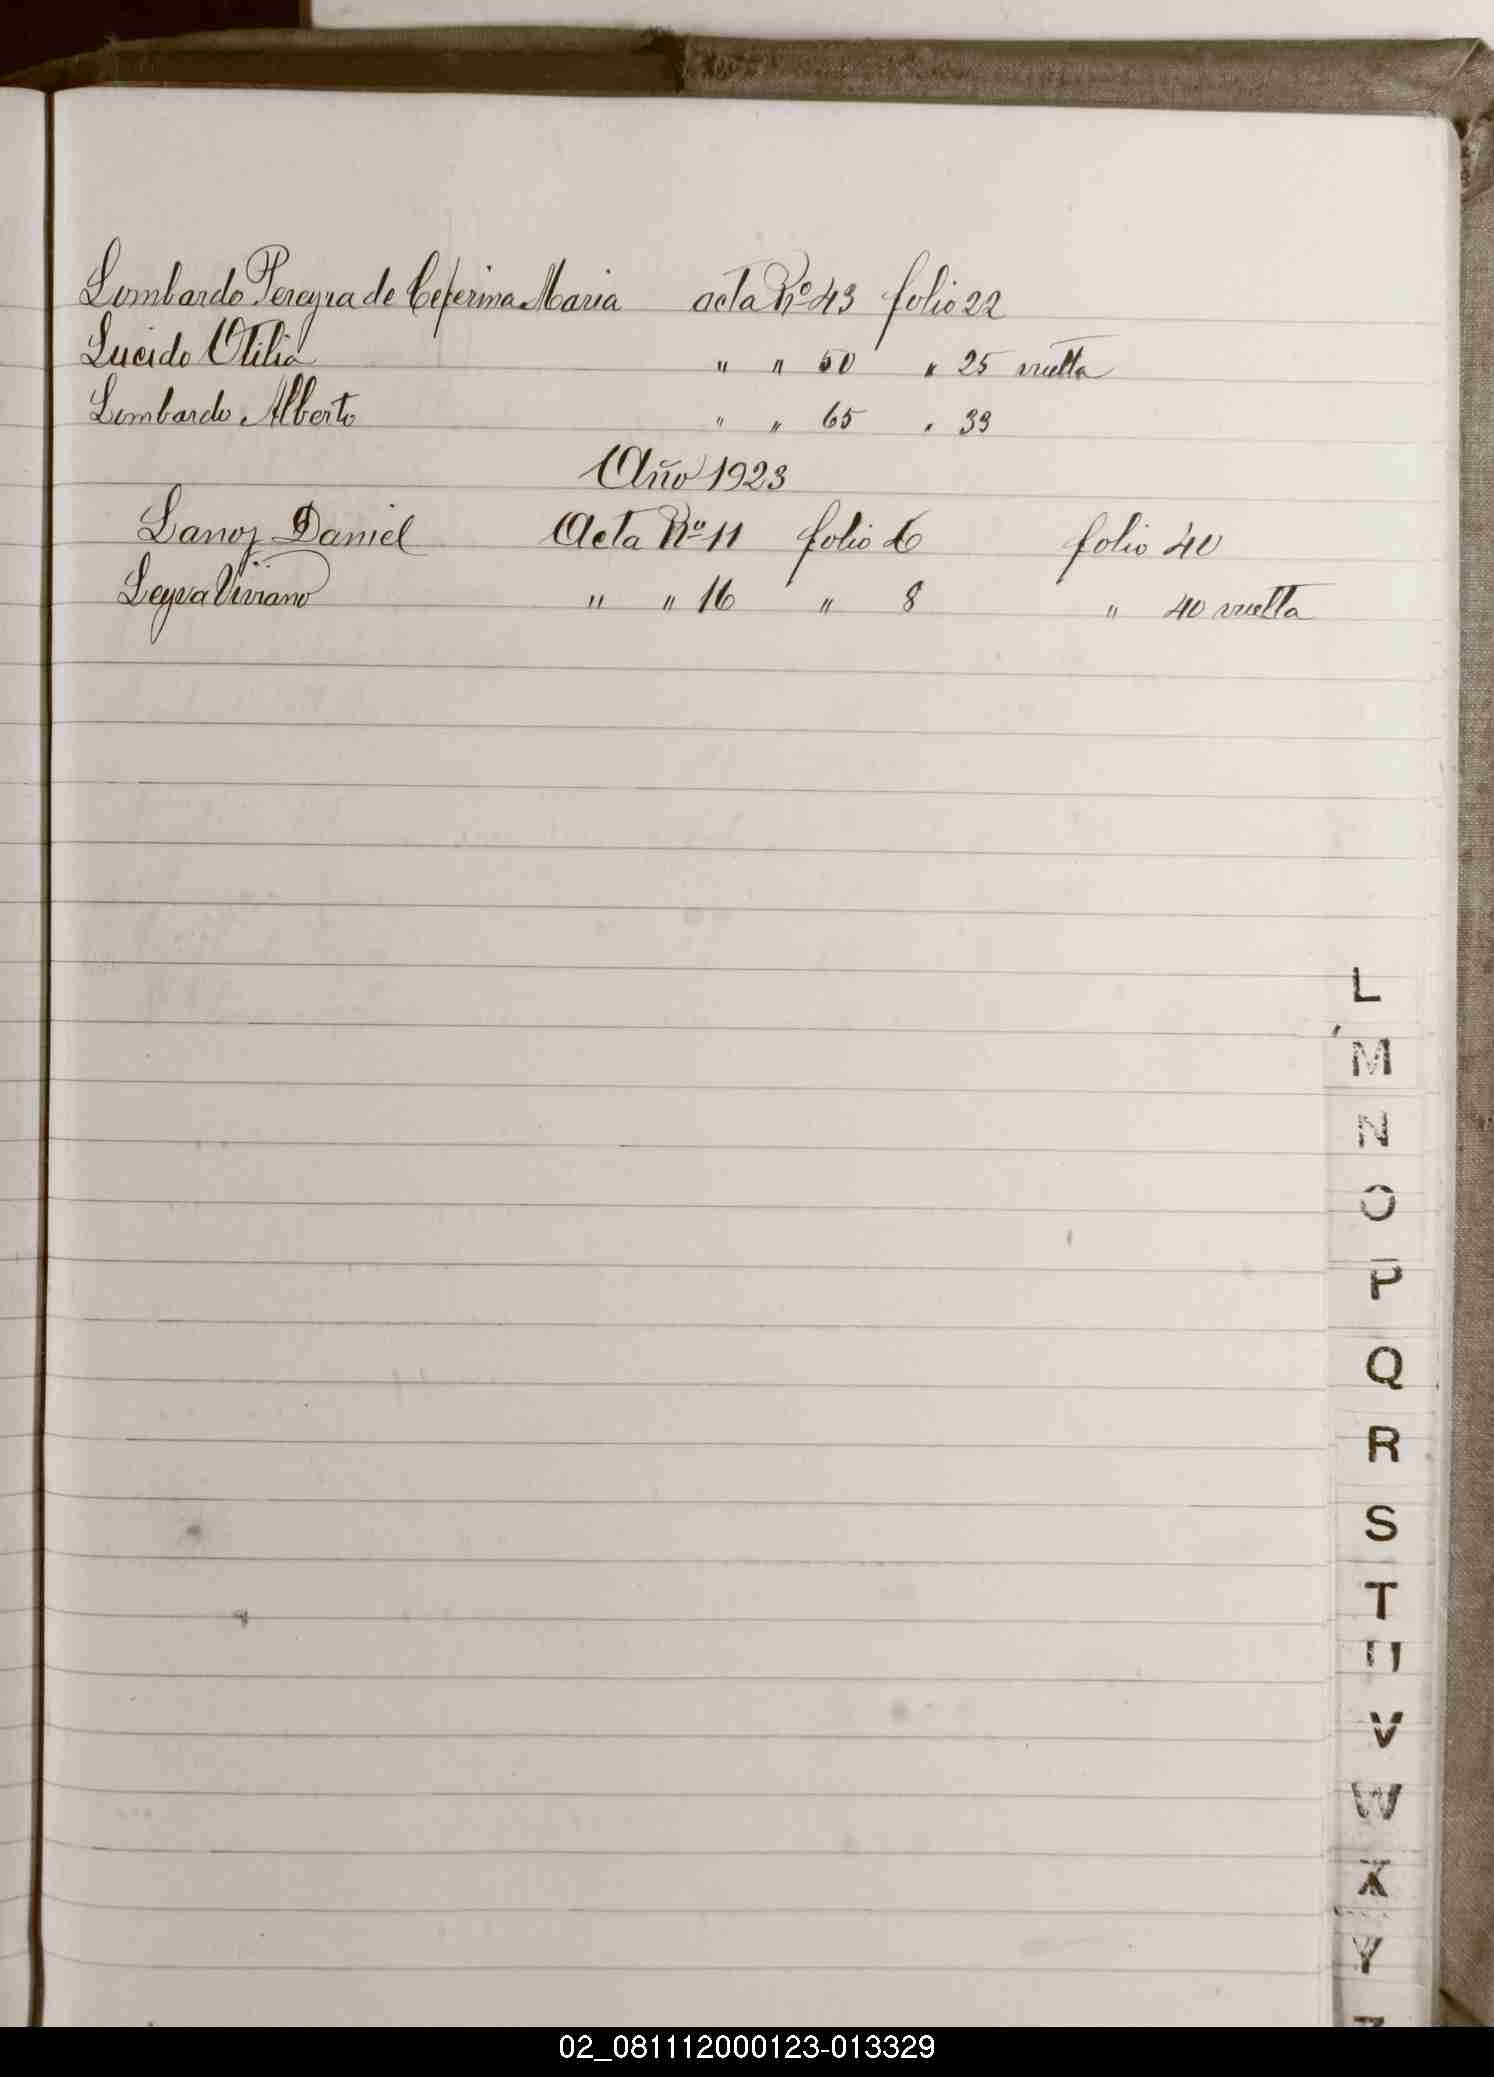 Lombardo Pereyra de Ceferina Maria acta Nº 43 folio 22
Lucido Otilia " " 50 " 25 vuelta
Lombardo Alberto " " 65 " 33
Año 1923
Lanoz Daniel Acta Nº 11 folio 6 folio 40
Leyva Viviano " " 16 " 8 " 40 vuelta
L
M
N
O
P
Q
R
S
T
U
V
W
X
Y
Z
02_081112000123-013329